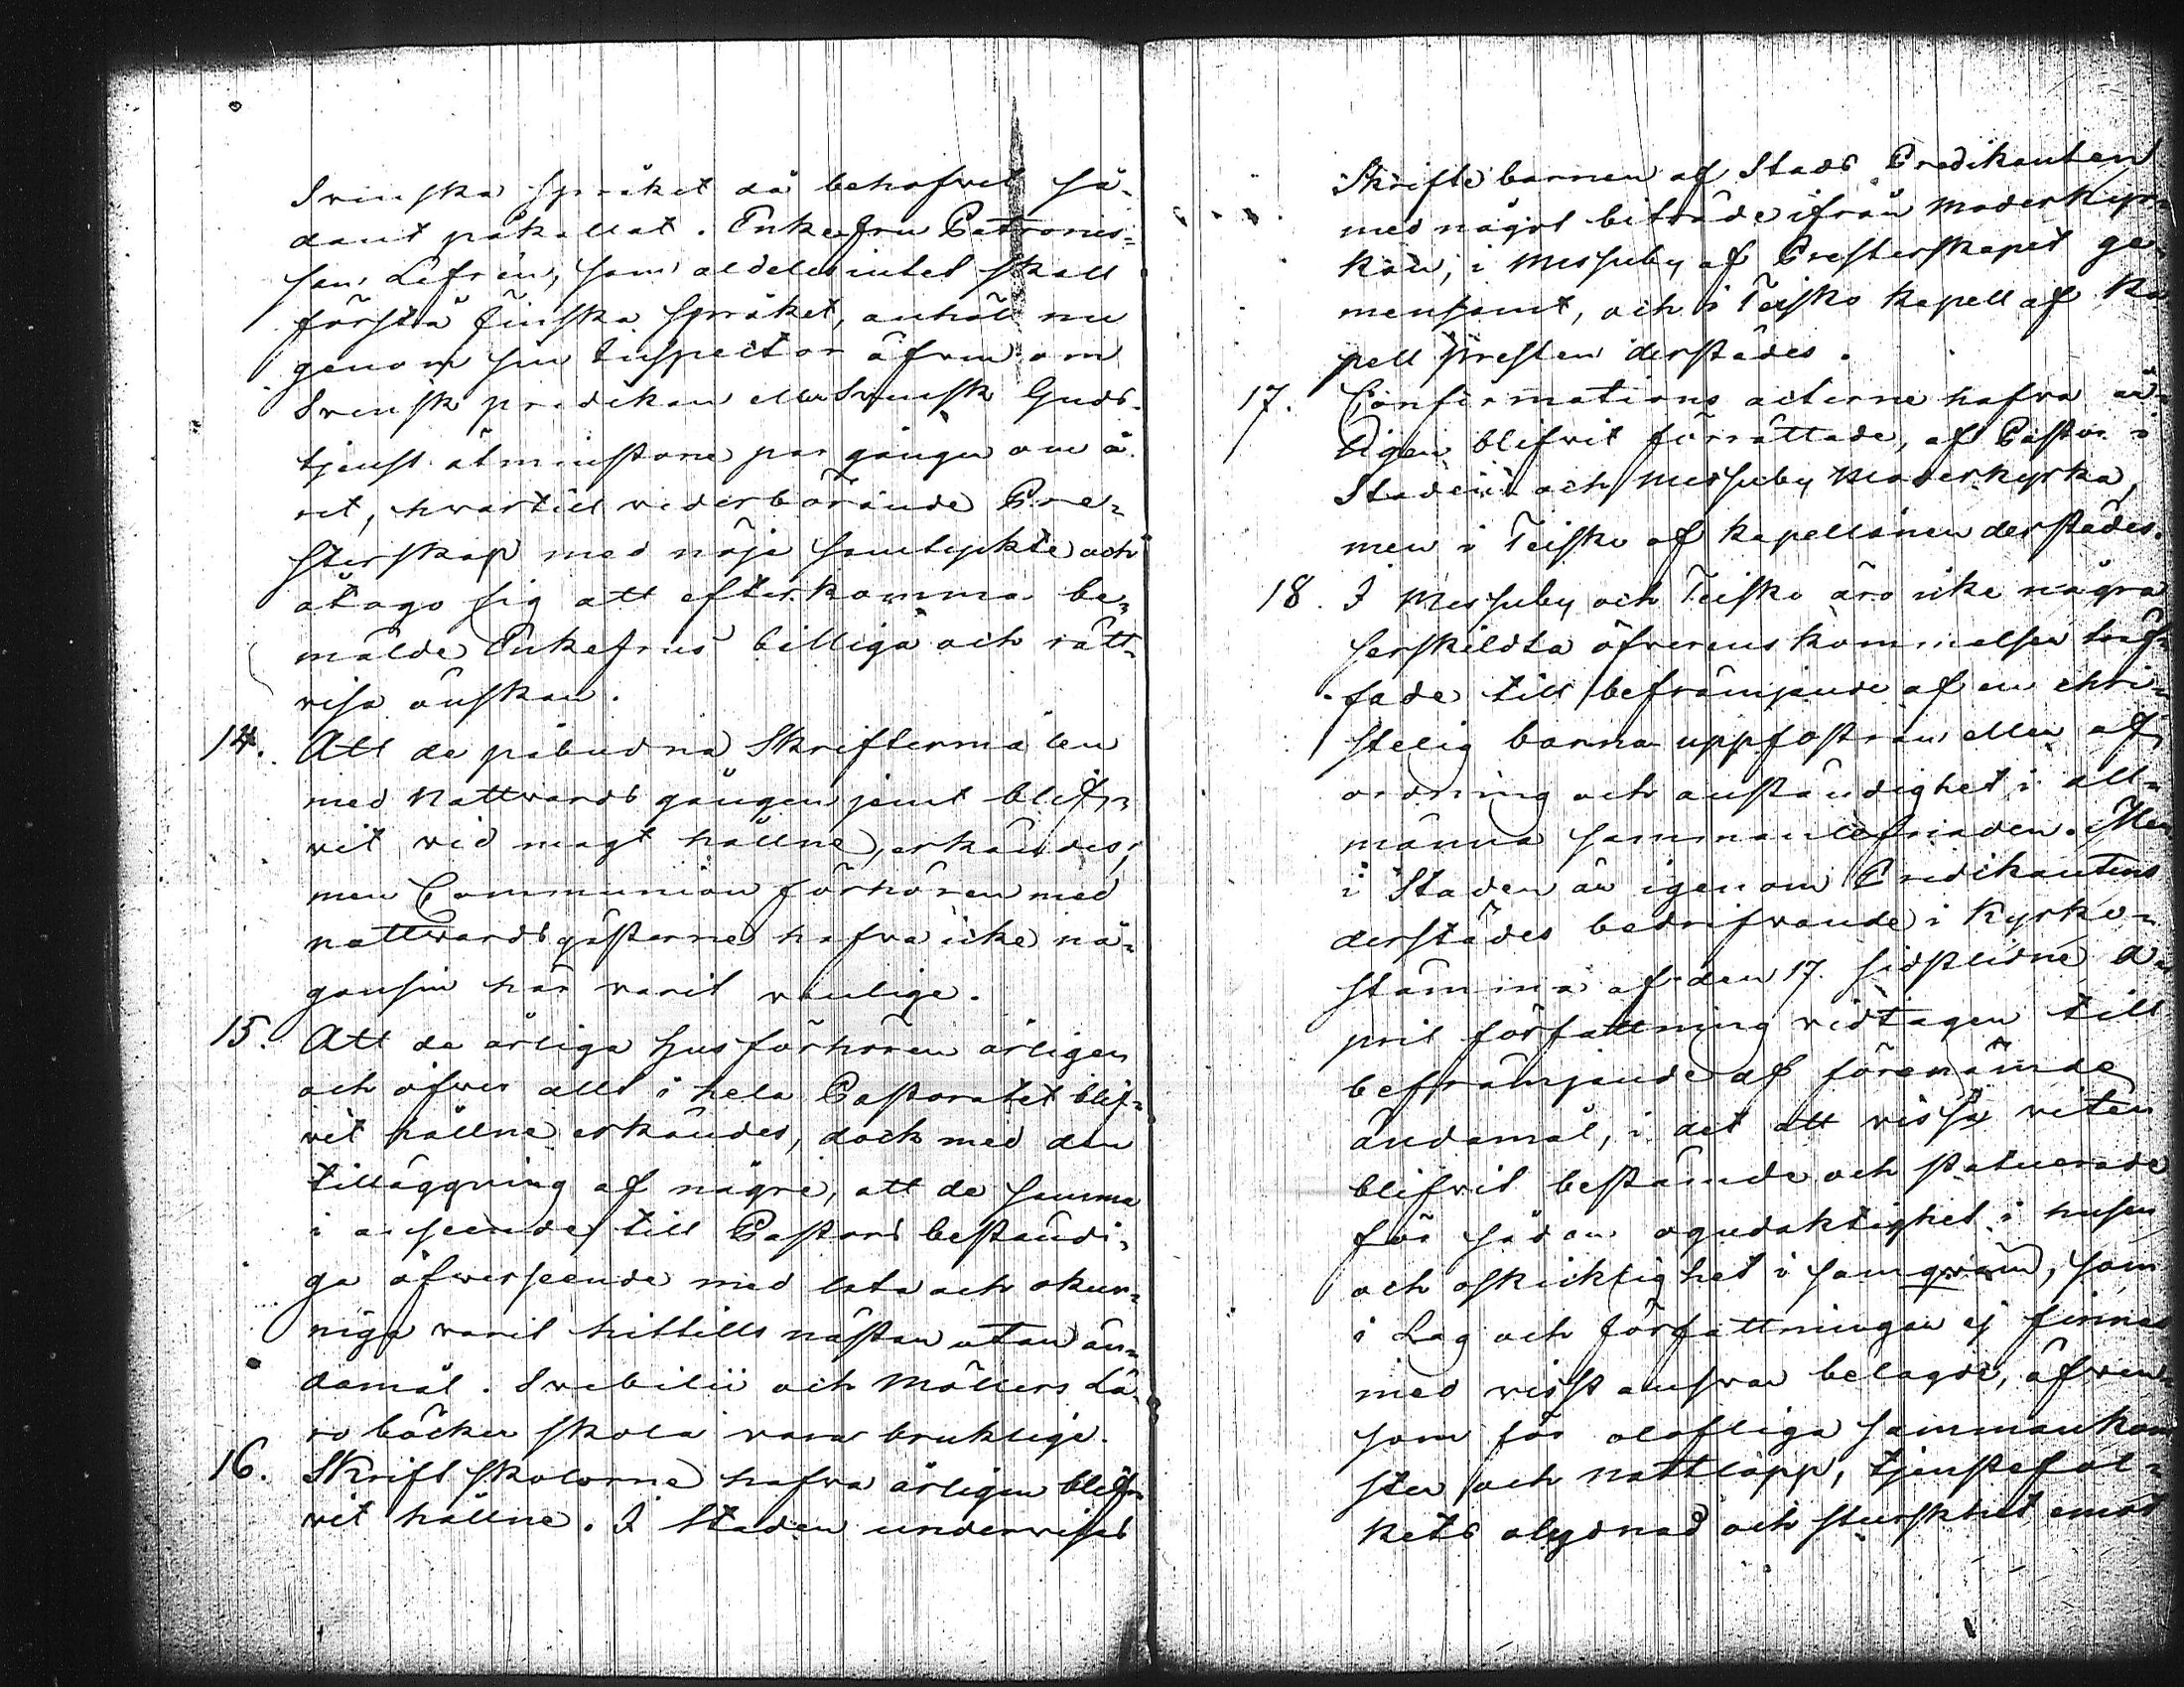 Svenska språket då behofvet så-
dant påkallat. Enkefru Patrones-
san Lefrén, som aldeles intet skall
förstå finska språket, anhöll nu
genom sin Inspector äfven om
Svensk predikan eller Svensk Guds-
tjenst åtminstone par gånger om å-
ret, hvartill vederbörande Pre-
sterskap med nöje samtyckte och
åtogo sig att efterkomma be-
mälde Enkefrus billiga och rätt-
visa önskan.
14. Att de påbudna Skriftermålen
med Nattvardsgången jemt blif-
vit vid magt hållne, erkändes;
men Communion förhören med
nattvardsgästerne hafva icke nå-
gonsin här varit vanlige.
15. Att de årliga Husförhören årligen
och öfver allt i hela Pastoratet blif-
vit hållne erkändes, dock med den
tilläggning af någre, att de samma
i anseende till Pastors beständi-
ga öfverseende med lata och okun-
niga varit hittills nästan utan än-
damål. Svebilii och Möllers Lä-
roböcker skola vara bruklige.
16. Skriftskolorne hafva årligen blif-
vit hållne. I Staden undervises
Skriftebarnen af Stads Predikanten
med något biträde ifrån moderkyr-
kan, i Messuby af Presterskapet ge-
mensamt, och i Teisko Kapell af Ka-
pell Presten derstädes.
17. Confirmations acterne hafva är-
ligen blifvit förrättade, af Pastor i
Staden och Messuby Moderkyrka,
men i Teisko af Kapellanen derstädes.
18. I Messuby och Teisko äro icke några
serskildta öfverenskommelser träf-
fade till befrämjande af en chri-
stelig barna uppfostran eller af
ordning och anständighet i all-
männa sammanlefnaden. Men
i Staden är igenom Predikantens
derstädes bedrifvande i Kyrko-
stämma af den 17. sidstlidne A-
pril författning vidtagen till
befrämjande af förenämde
ändamål, i det att vissa viten
blifvit bestämde och statuerade
för sådan ogudaktighet i husen
och oskicklighet i samqväm, som
i Lag och författningar ej finnas
med visst ansvar belagde, äfven-
som för olofliga sammankom-
ster och nattlopp, tjenstefol-
kets olydnad och sturskhet emot